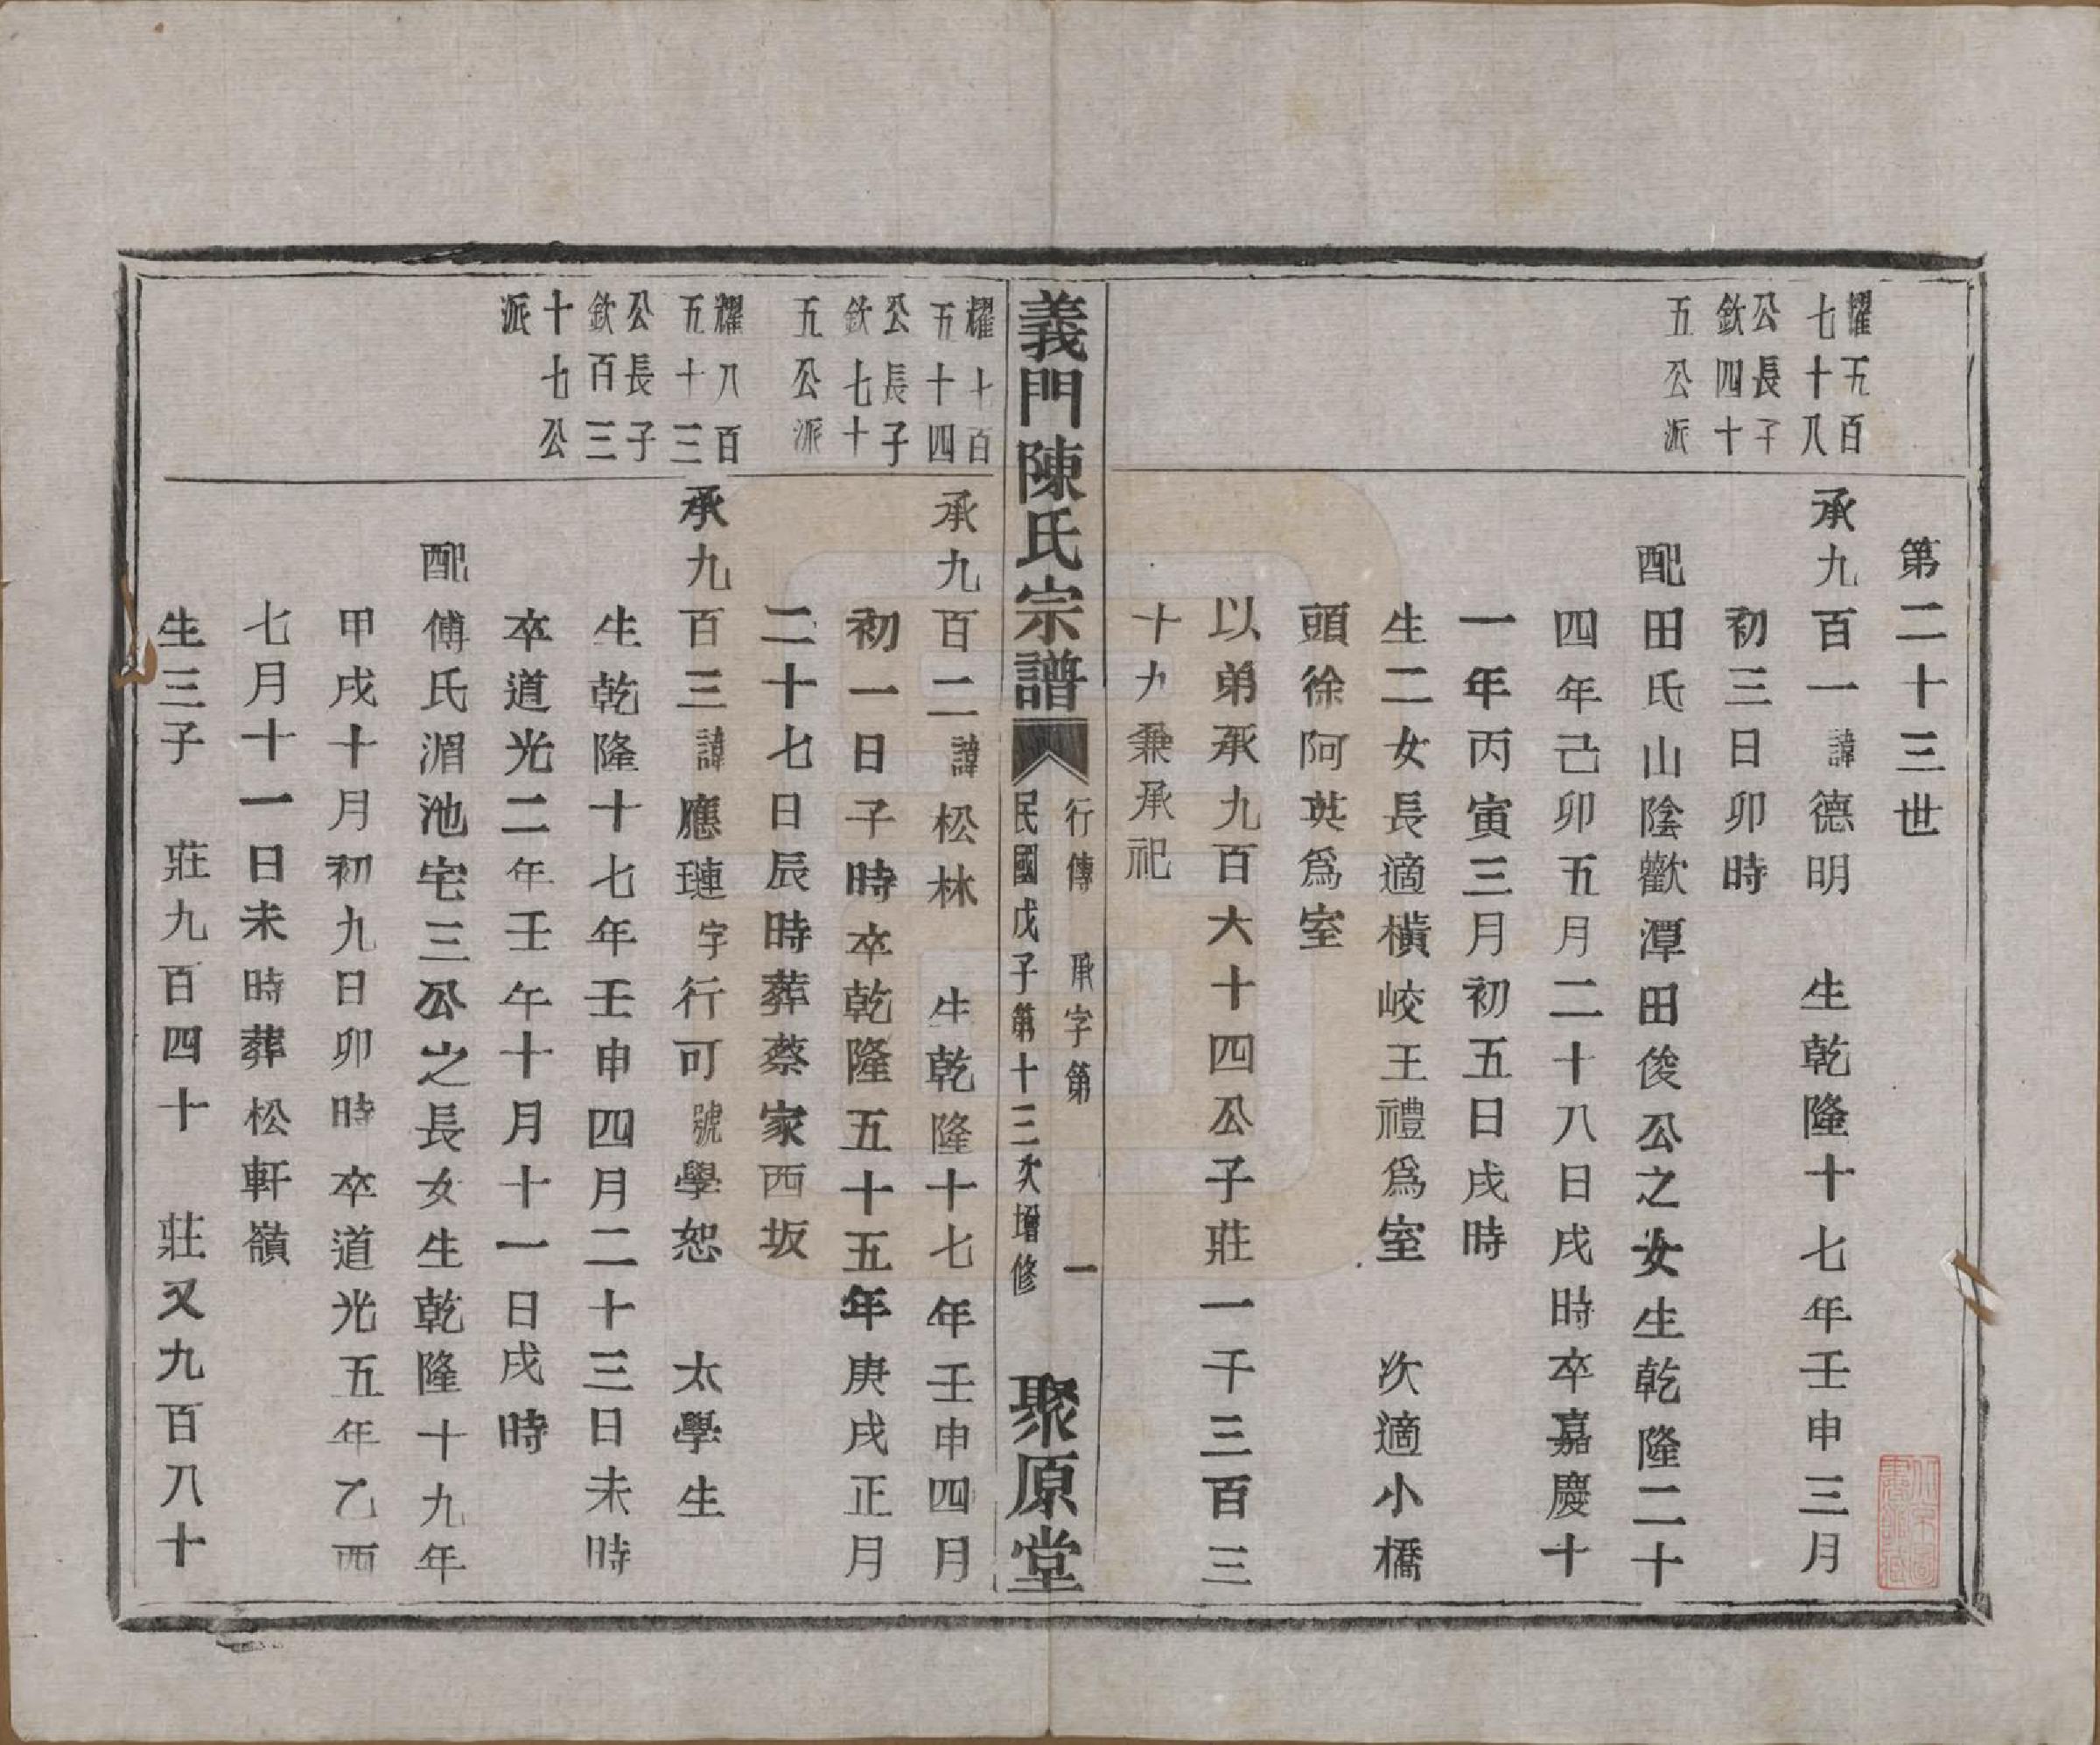 第二十三世
耀五百
七十八
公長子
欽四十
五公派
承九百一諱德明　生乾隆十七年壬申三月
初三日卯時
配田氏山陰歡潭田俊公之女生乾隆二十
四年己卯五月二十八日戌時卒嘉慶十
一年丙寅三月初五日戌時
生二女長適橫峧王禮爲室　次適小橋
頭徐阿英爲室
以弟承九百大十四公子莊一千三百三
十九兼承祀
義門陳氏宗譜
行傳　承字第　一
民國戊子第十三次增修
聚原堂
耀十百
五十四
公長子
欽七十
五公派
承九百二諱松林　生乾隆十七年壬申四月
初一日子時卒乾隆五十五年庚戌正月
二十七日辰時葬蔡家西坂
耀八百
五十三
公長子
欽百三
十七公
派
承九百三諱應璉字行可號學恕　太學生
生乾隆十七年壬申四月二十三日未時
卒道光二年壬午十月十一日戌時
配傅氏湄池宅三公之長女生乾隆十九年
甲戌十月初九日卯時　卒道光五年乙酉
七月十一日未時葬松軒嶺
生三子　莊九百四十　莊又九百八十